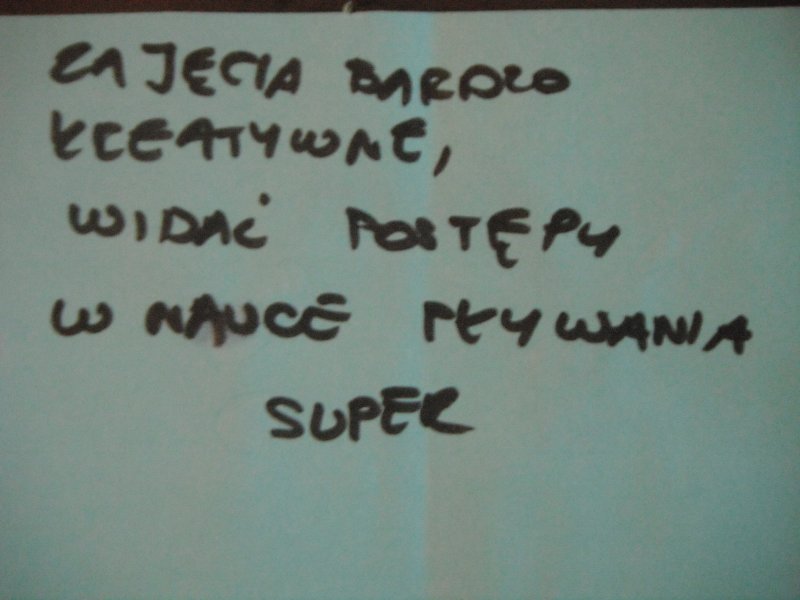 ZAJĘCIA BARDZO
KREATYWNE,
WIDAĆ POSTĘPY
W NAUCE PŁYWANIA
SUPER